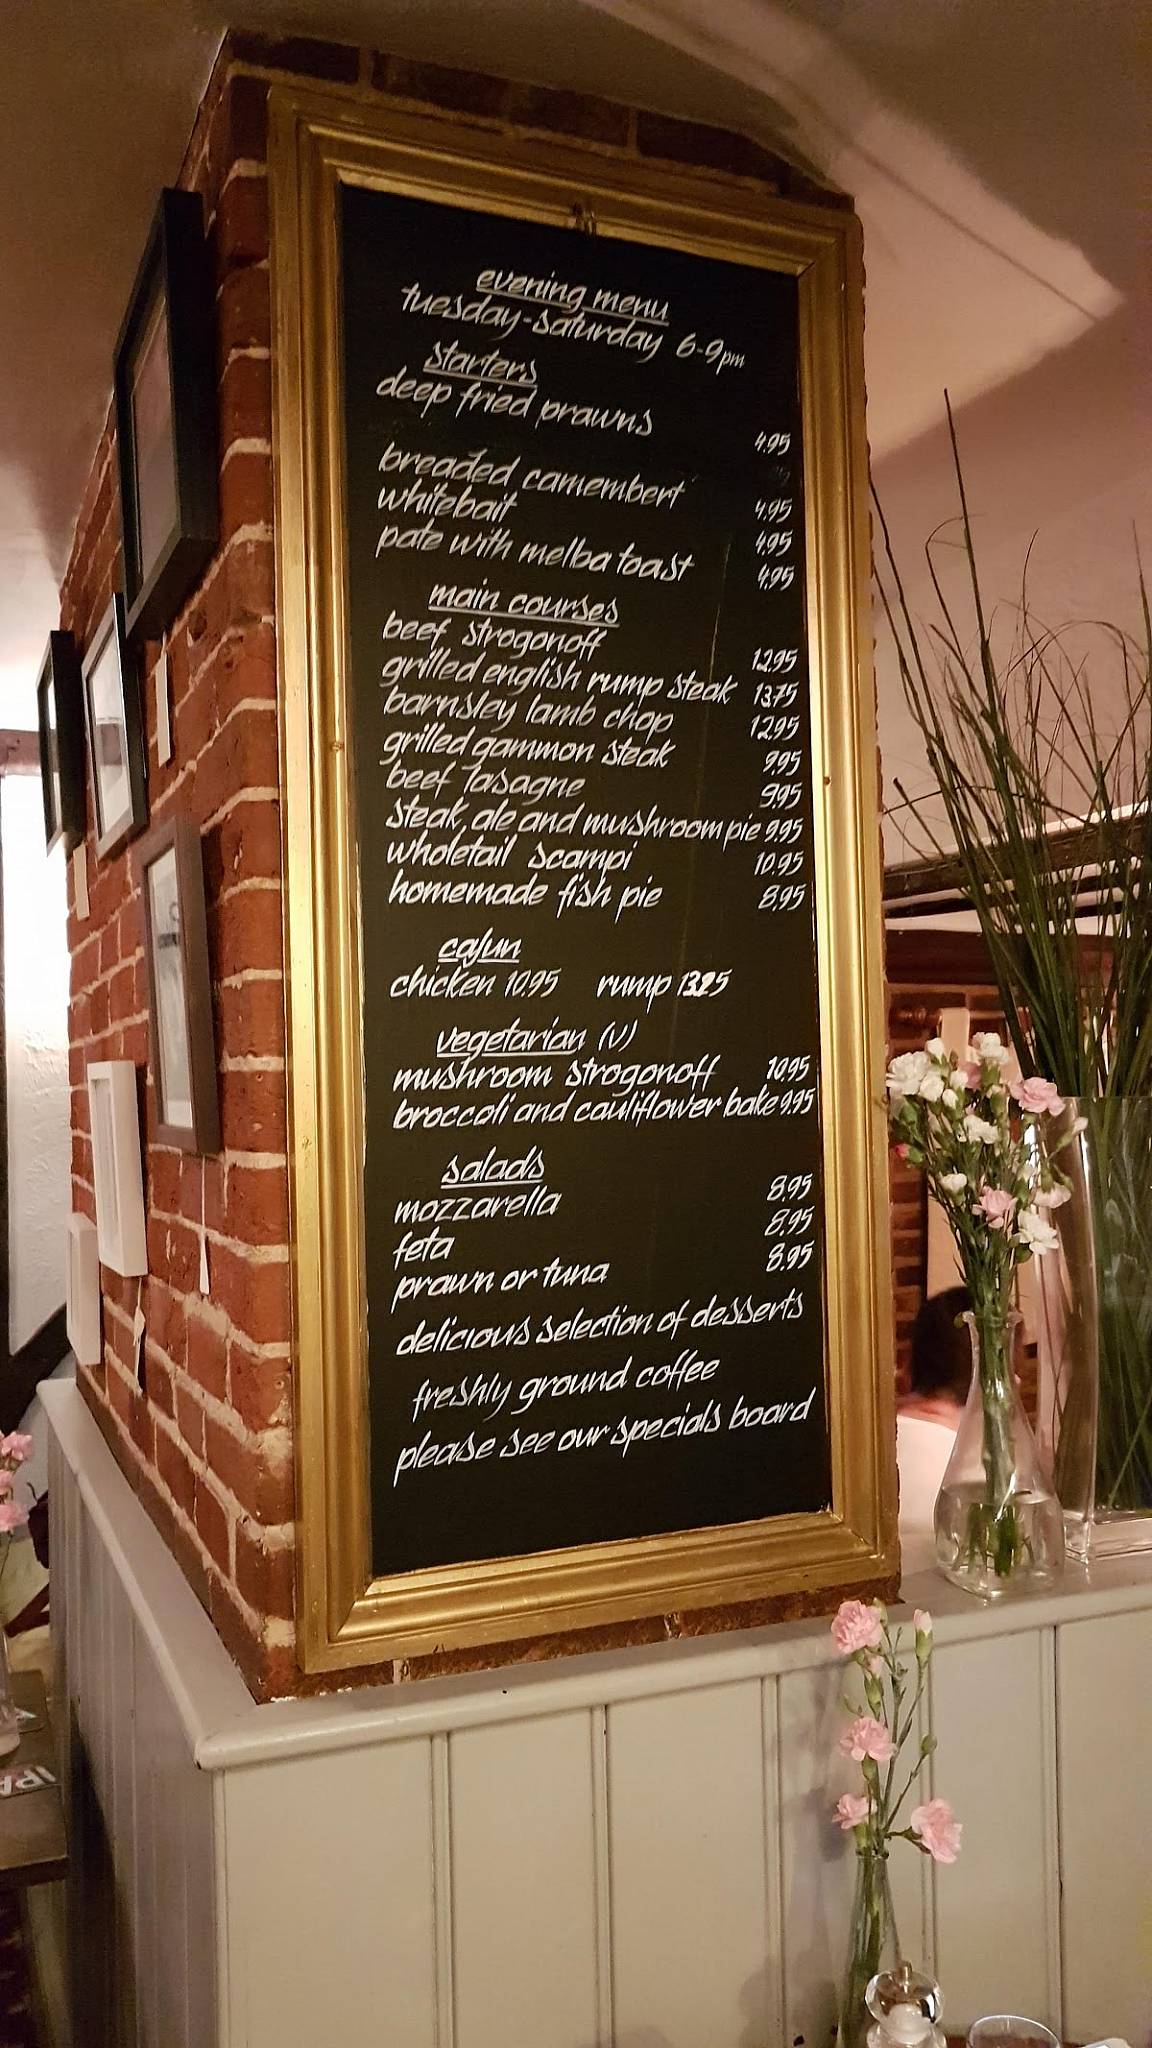 evening menu
tuesday-saturday 6-9pm
starters
deep fried prawns 4.95
breaded camembert 4.95
whitebait 4.95
pate with melba toast 4.95
main courses
beef strogonoff 12.95
grilled english rump steak 13.75
barnsley lamb chop 12.95
grilled gammon steak 9.95
beef lasagne 9.95
steak, ale and mushroom pie 9.95
wholetail scampi 10.95
homemade fish pie 8.95
cajun
chicken 10.95 rump 13.25
vegetarian (v)
mushroom strogonoff 10.95
broccoli and cauliflower bake 9.95
salads
mozzarella 8.95
feta 8.95
prawn or tuna 8.95
delicious selection of desserts
freshly ground coffee
please see our specials board
IPA